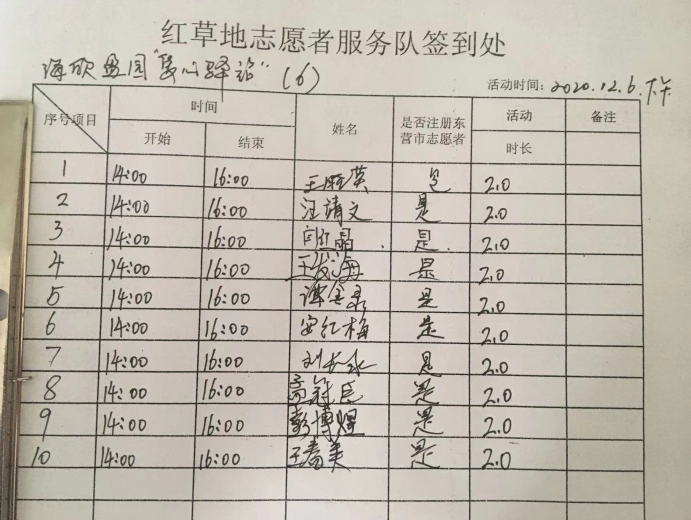 红草地志愿者服务队签到处
海欣盈园"爱心驿站"(6)
活动时间:2020.12.6.下午
序号项目 时间 姓名 是否注册东营市志愿者 活动 备注
开始 结束 时长
1 14:00 16:00 是 2.0
2 14:00 16:00 汪靖文 是 2.0
3 14:00 16:00 闫红晶 是 2.0
4 14:00 16:00 王成海 是 2.0
5 14:00 16:00 谭金录 是 2.0
6 14:00 16:00 安红梅 是 2.0
7 14:00 16:00 刘长永 是 2.0
8 14:00 16:00 孟冠臣 是 2.0
9 14:00 16:00 彭博煜 是 2.0
10 14:00 16:00 王春美 是 2.0